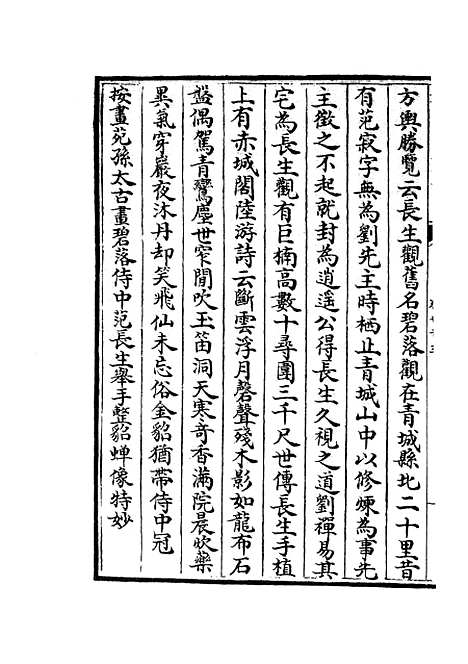 方輿勝覽云長生觀舊名碧落觀在青城縣北二十里昔
有范寂字無為劉先主時栖止青城山中以修煉為事先
主徵之不起就封為逍遥公得長生久視之道劉禪易其
宅為長生觀有巨楠高數十尋圍三千尺世傳長生手植
上有赤城閣陸游詩云斷雲浮月磬聲殘木影如龍布石
盤偶駕青鸞塵世窄閒吹玉笛洞天寒竒香滿院晨炊藥
異氣穿巖夜沐丹却笑飛仙未忘俗金貂猶帶侍中冠
按畫苑孫太古畫碧落侍中范長生舉手整貂蟬像特妙